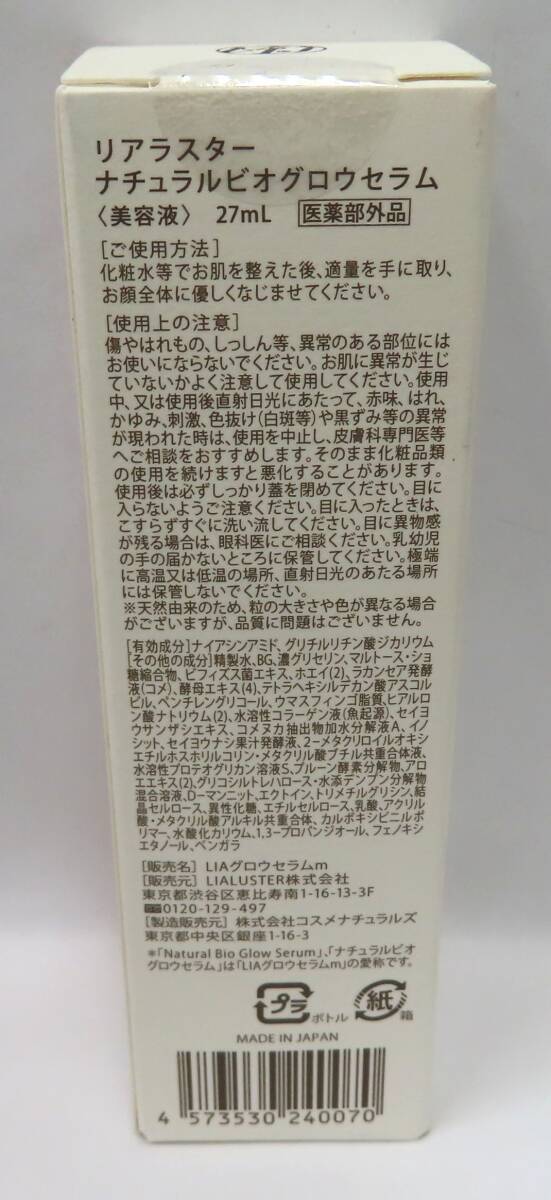 リアラスター
ナチュラルビオグロウセラム
〈美容液〉 27mL 医薬部外品
[ご使用方法]
化粧水等でお肌を整えた後、適量を手に取り、
お顔全体に優しくなじませてください。
[使用上の注意]
傷やはれもの、しっしん等、異常のある部位には
お使いにならないでください。お肌に異常が生じ
ていないかよく注意して使用してください。使用
中、又は使用後直射日光にあたって、赤味、はれ、
かゆみ、刺激、色抜け(白斑等)や黒ずみ等の異常
が現われた時は、使用を中止し、皮膚科専門医等
へご相談をおすすめします。そのまま化粧品類
の使用を続けますと悪化することがあります。
使用後は必ずしっかり蓋を閉めてください。目に
入らないようご注意ください。目に入ったときは、
こすらずすぐに洗い流してください。目に異物感
が残る場合は、眼科医にご相談ください。乳幼児
の手の届かないところに保管してください。極端
に高温又は低温の場所、直射日光のあたる場所
には保管しないでください。
※天然由来のため、粒の大きさや色が異なる場合
がございますが、品質に問題はございません。
[有効成分]ナイアシンアミド、グリチルリチン酸ジカリウム
[その他の成分]精製水、BG、濃グリセリン、マルトース・ショ
糖縮合物、ビフィズス菌エキス、ホエイ(2)、ラカンセア発酵
液(コメ)、酵母エキス(4)、テトラヘキシルデカン酸アスコル
ビル、ペンチレングリコール、ウマスフィンゴ脂質、ヒアルロ
ン酸ナトリウム(2)、水溶性コラーゲン液(魚起源)、セイヨ
ウサンザシエキス、コメヌカ抽出物加水分解液A、イノ
シット、セイヨウナシ果汁発酵液、2-メタクリロイルオキシ
エチルホスホリルコリン・メタクリル酸ブチル共重合体液、
水溶性プロテオグリカン溶液S、プルーン酵素分解物、アロ
エエキス(2)、グリコシルトレハロース・水添デンプン分解物
混合溶液、D-マンニット、エクトイン、トリメチルグリシン、結
晶セルロース、異性化糖、エチルセルロース、乳酸、アクリル
酸・メタクリル酸アルキル共重合体、カルボキシビニルポ
リマー、水酸化カリウム、1,3-プロパンジオール、フェノキシ
エタノール、ベンガラ
[販売名] LIAグロウセラムm
[販売元] LIALUSTER株式会社
東京都渋谷区恵比寿南1-16-13-3F
0120-129-497
[製造販売元] 株式会社コスメナチュラルズ
東京都中央区銀座1-16-3
*「Natural Bio Glow Serum」、「ナチュラルビオ
グロウセラム」は「LIAグロウセラムm」の愛称です。
プラ ボトル 紙 箱
MADE IN JAPAN
4 573530 240070